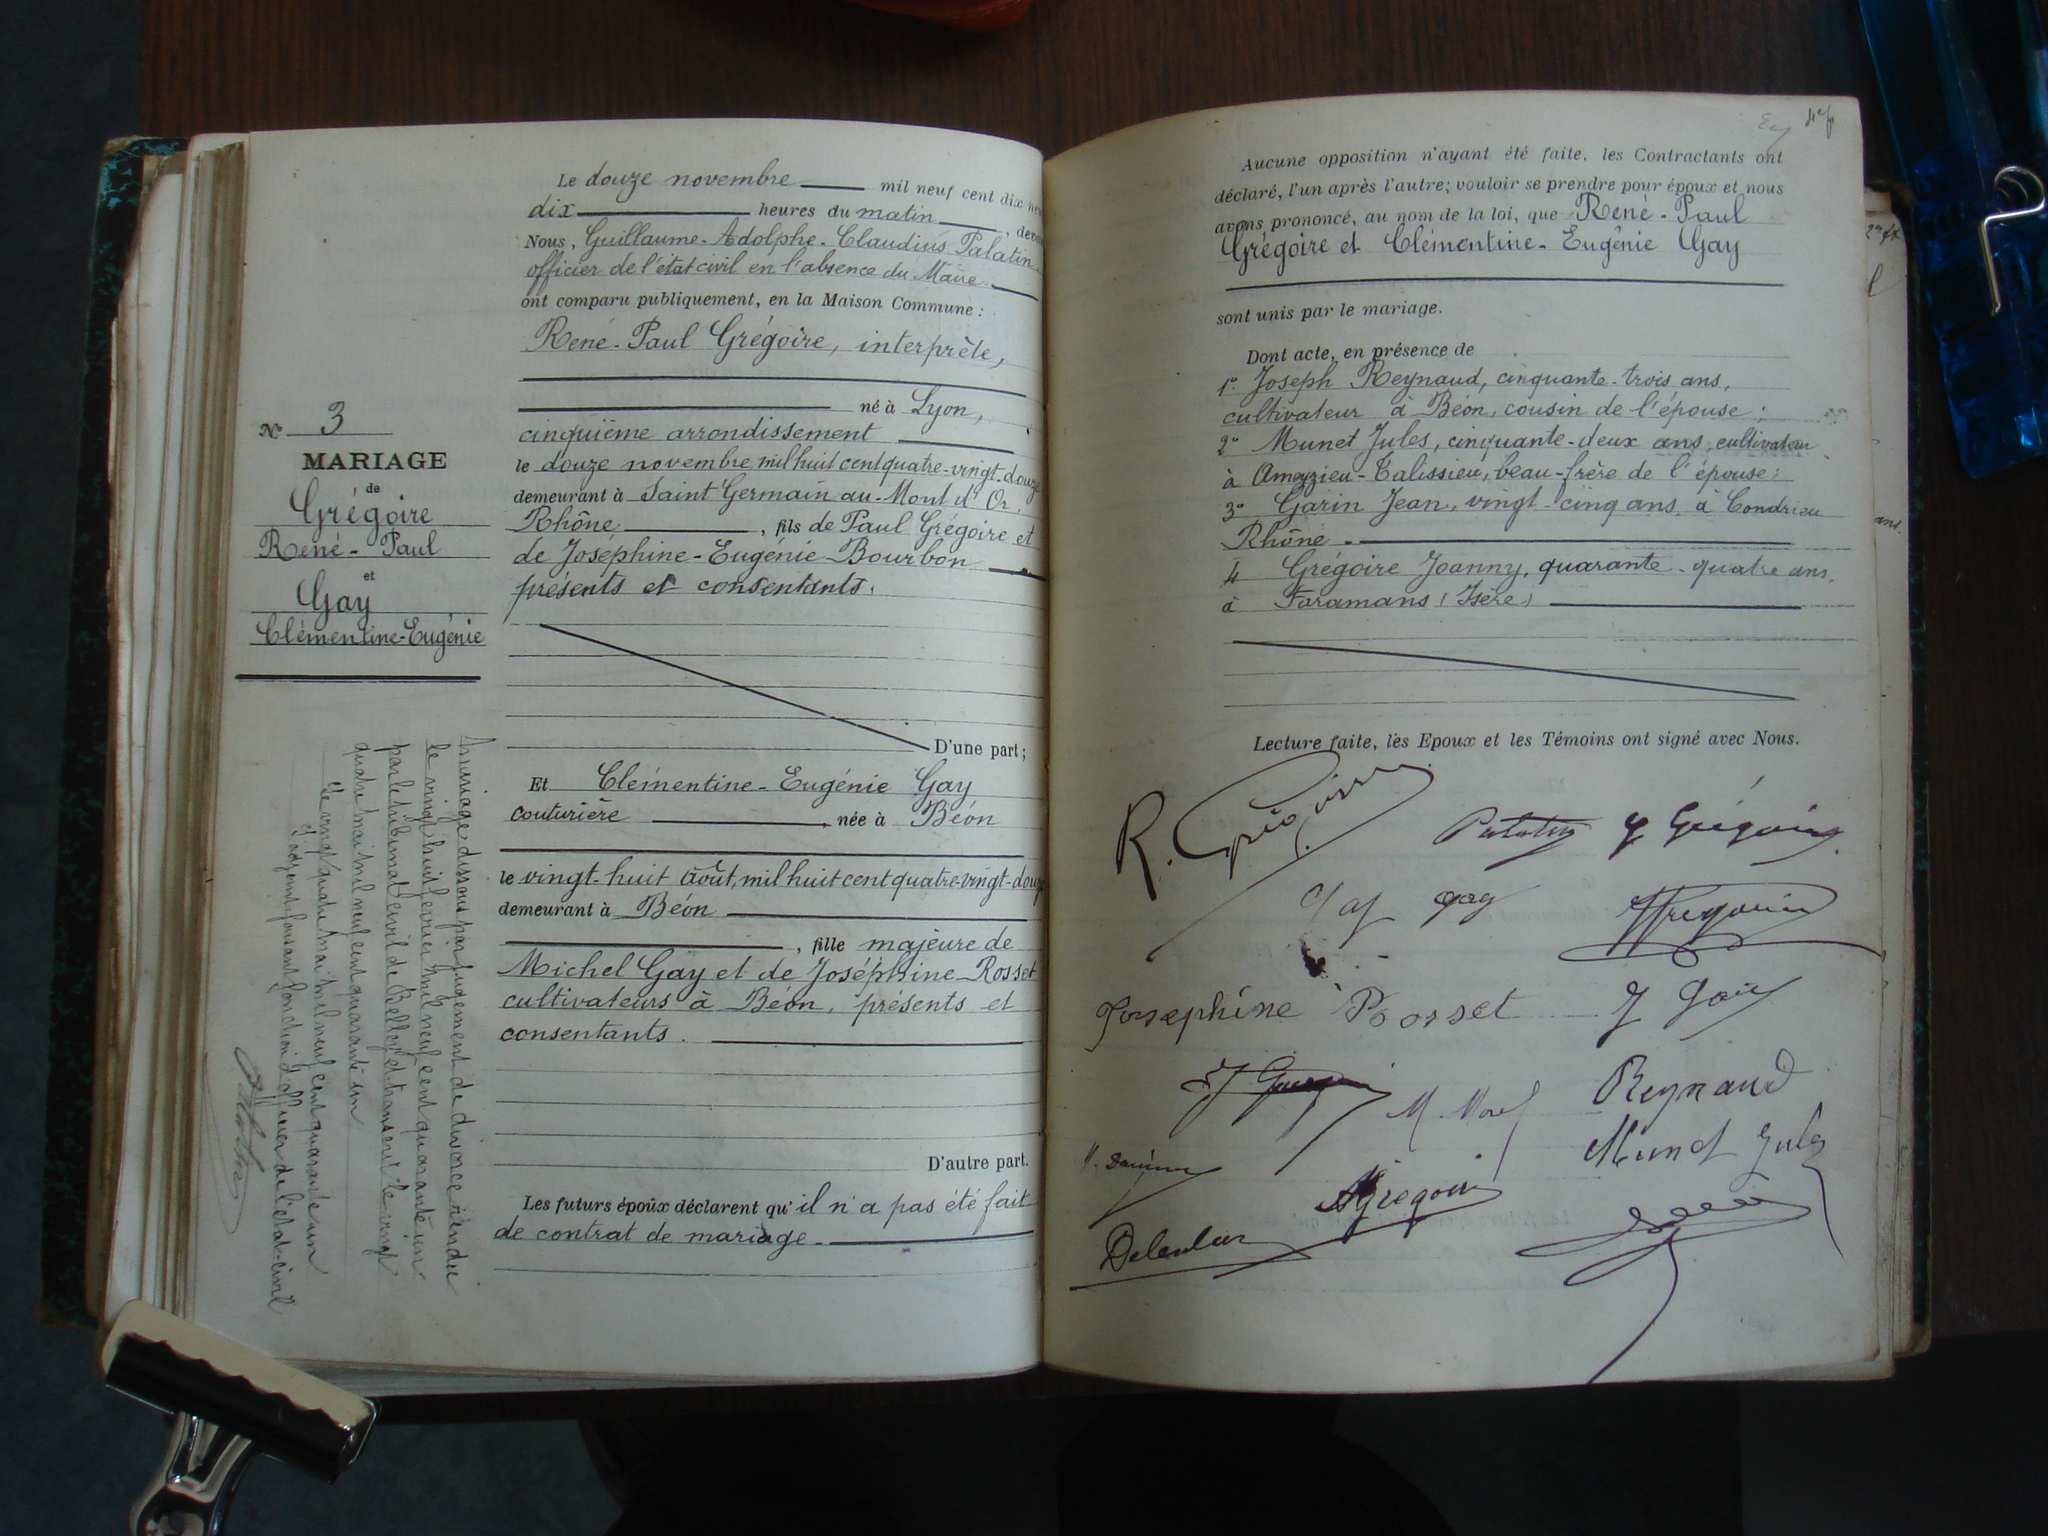 Le douze novembre mil neuf cent dix neu
dix heures du matin, deva
Nous, Guillaume-Adolphe-Claudius Palatin
officier de l'état civil en l'absence du Maire
ont comparu publiquement, en la Maison Commune :
René-Paul Grégoire, interprète,
né à Lyon,
cinquième arrondissement
le douze novembre mil huit cent quatre-vingt-douze
demeurant à Saint Germain au-Mont d'Or,
Rhône, fils de Paul Grégoire et
de Joséphine-Eugénie Bourbon
présents et consentants.
D'une part ;
Et Clémentine-Eugénie Gay
couturière, née à Béon
le vingt-huit Août, mil huit cent quatre-vingt-douze
demeurant à Béon
, fille majeure de
Michel Gay et de Joséphine Rosset
cultivateurs à Béon, présents et
consentants.
D'autre part.
Les futurs époux déclarent qu'il n'a pas été fait
de contrat de mariage.
No 3
MARIAGE
de
Grégoire
René-Paul
et
Gay
Clémentine-Eugénie
Mariage dissous par jugement de divorce rendu
le vingt huit février mil neuf cent quarante un
par le tribunal civil de Belley et transcrit le vingt
quatre mai mil neuf cent quarante un
Le vingt quatre mai mil neuf cent quarante un
L'adjoint faisant fonction d'officier de l'état-civil
Aucune opposition n'ayant été faite, les Contractants ont
déclaré, l'un après l'autre ; vouloir se prendre pour époux et nous
avons prononcé, au nom de la loi, que René-Paul
Grégoire et Clémentine-Eugénie Gay
sont unis par le mariage.
Dont acte, en présence de
1° Joseph Reynaud, cinquante-trois ans,
cultivateur à Béon, cousin de l'épouse ;
2° Munet Jules, cinquante-deux ans, cultivateur
à Ameyzieu-Talissieu, beau-frère de l'épouse ;
3° Garin Jean, vingt-cinq ans à Condrieu
Rhône.
4 Grégoire Joanny, quarante-quatre ans,
à Faramans (Isère)
Lecture faite, les Epoux et les Témoins ont signé avec Nous.
R. Grégoire
Palatin Grégoire
Gay gay
Josephine Rosset
M. Morel
Reynaud
Munet Jules
Grégoire
ans.